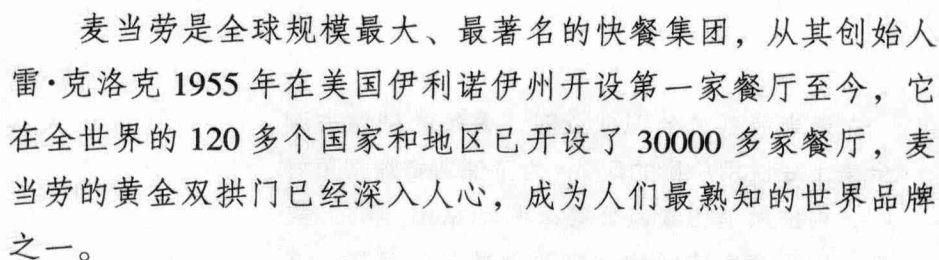 麦当劳是全球规模最大、最著名的快餐集团，从其创始人
雷·克洛克 1955 年在美国伊利诺伊州开设第一家餐厅至今，它
在全世界的 120 多个国家和地区已开设了 30000 多家餐厅，麦
当劳的黄金双拱门已经深入人心，成为人们最熟知的世界品牌
之一。